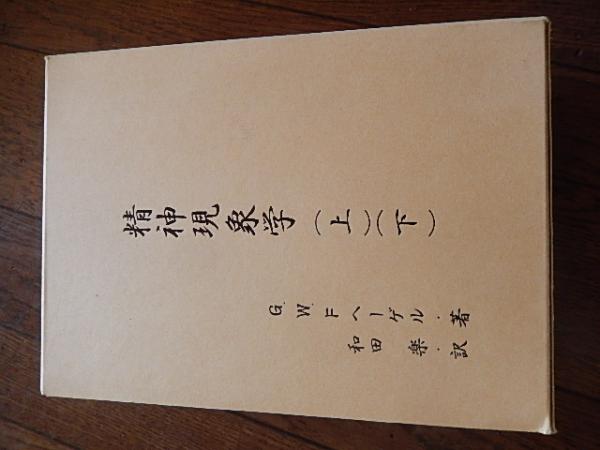 精神現象学(上)(下)
G.W.F ヘーゲル・著
和田 楽・訳